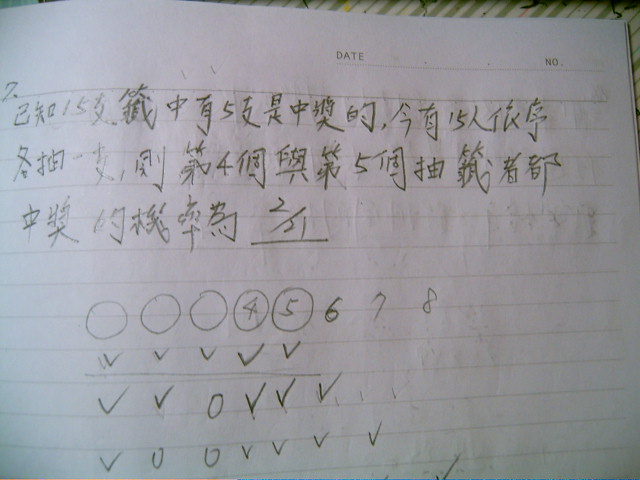 DATE NO.
7.
已知15支籤中有5支是中獎的,今有15人依序
各抽一支,則第4個與第5個抽籤者都
中獎的機率為 2/21
④ ⑤ 6 7 8